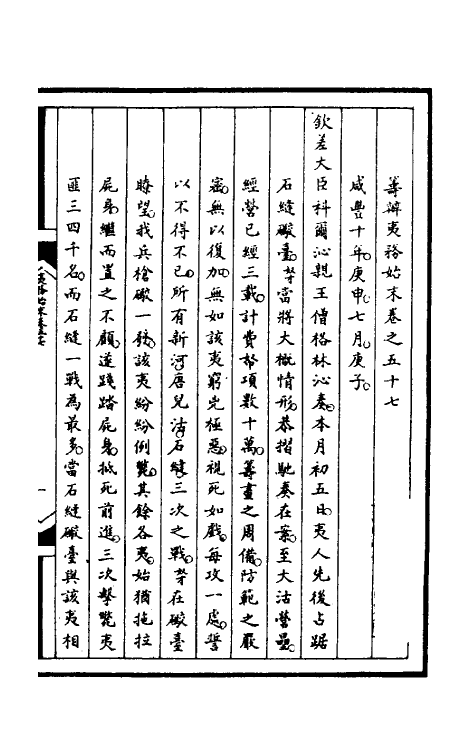 籌辦夷務始末卷之五十七
咸豐十年。庚申。七月。庚子。
欽差大臣科爾沁親王僧格林沁奏。本月初五日。夷人先後占踞
石縫礮臺。等當將大概情形。恭摺馳奏在案。至大沽營壘。
經營已經三載。計費帑項數十萬。籌畫之周備。防範之嚴
密。無以復加。無如該夷窮兇極惡。視死如戲。每攻一處。誓
以不得不已。所有新河唐兒沽。石縫三次之戰。等在礮臺
瞭望。我兵槍礮一發。該夷紛紛倒斃。其餘各夷。始猶拖拉
屍身。繼而置之不顧。遂踐踏屍身。抵死前進。三次擊斃夷
匪三四千名。而石縫一戰為最多。當石縫礮臺與該夷相